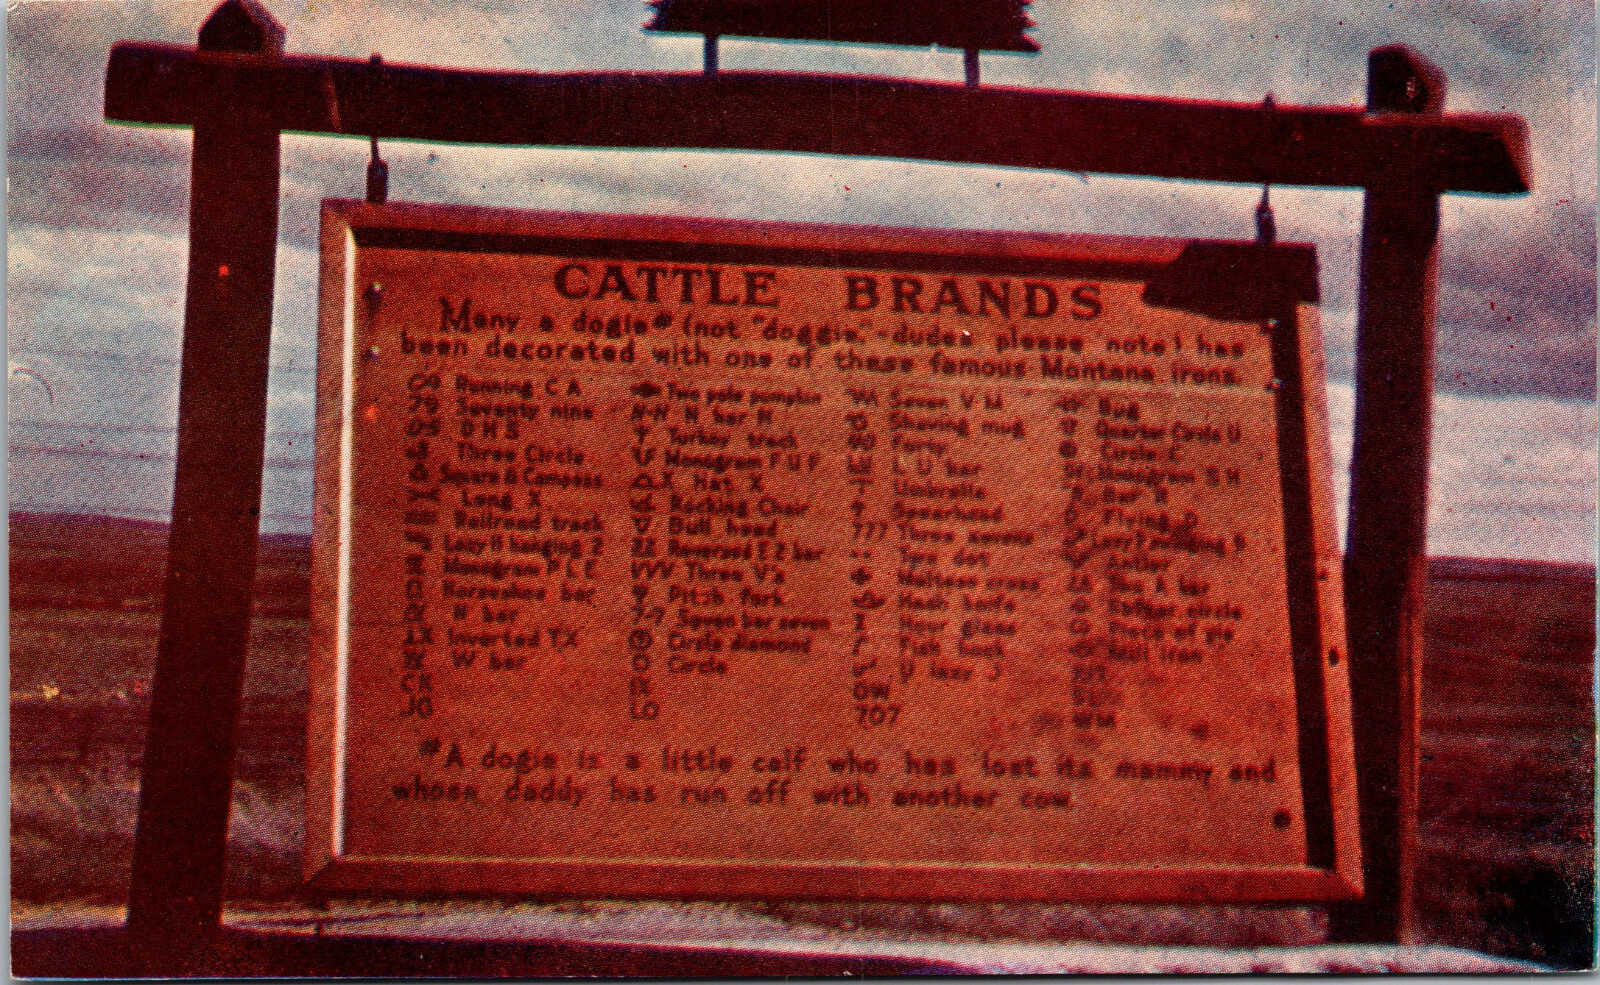 CATTLE BRANDS
Many a dogie* (not "doggie," - dudes please note) has
been decorated with one of these famous Montana irons.
Running C A Two pole pumpkin Seven V M Bug
79 Seventy nine N-N N bar N Shaving mug Quarter Circle U
D H S Turkey track 40 Forty Circle C
Three Circle Monogram F U F L U bar Monogram S H
Square & Compass X Hat X Umbrella Bar R
Long X Rocking Chair Spearhead Flying D
Railroad track Bull head 777 Three sevens
Lazy H hanging 2 Reversed E 2 bar Two dot Antler
Monogram P L E VVV Three V's Maltese cross Two A bar
Horseshoe bar Pitch fork Hash knife Rafter circle
N bar 7-7 Seven bar seven Hour glass Piece of pie
Inverted TX Circle diamond Fish hook Bull iron
W bar O Circle V lazy J
CK OW
JO LO 707 WM
*A dogie is a little calf who has lost its mammy and
whose daddy has run off with another cow.